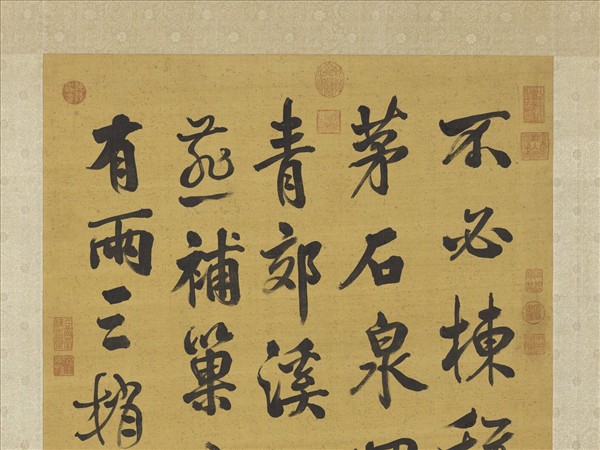 不必棟
茅石泉
青郊溪
燕補巢
有兩三梢